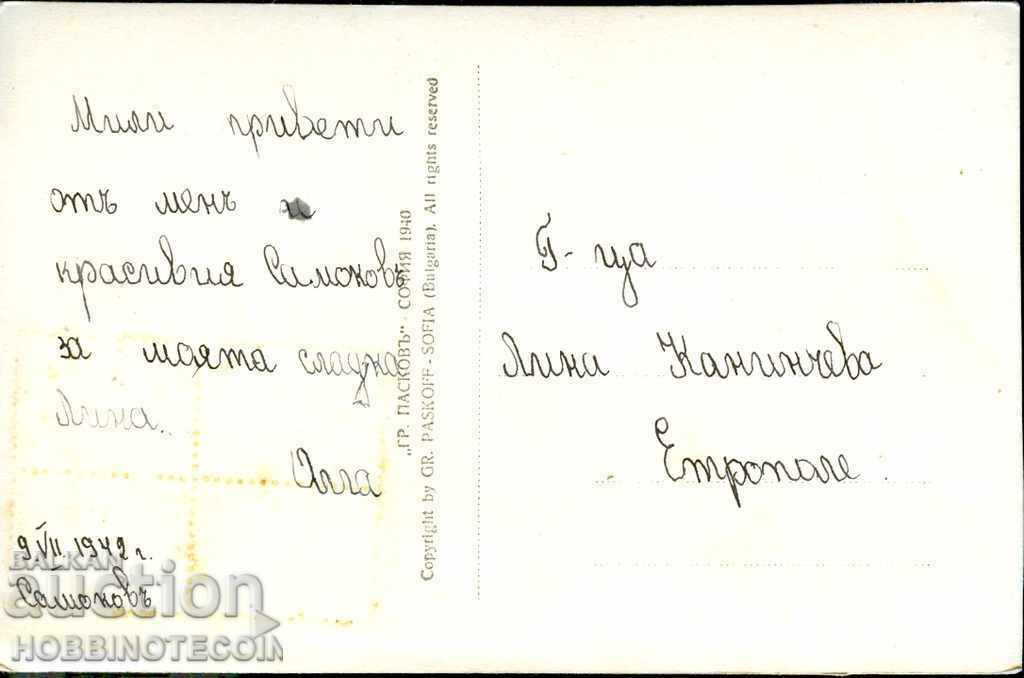 Мили привети
отъ менъ и
красивия Самоковъ
за моята сладка
Лина..
Олга
9.VII 1942 г.
Самоковъ
„ГР. ПАСКОВЪ" - СОФИЯ 1940
Copyright by GR. PASKOFF - SOFIA (Bulgaria). All rights reserved
Г-ца
Лина
Етрополе.
BALKAN
auction
HOBBINOTECOIN